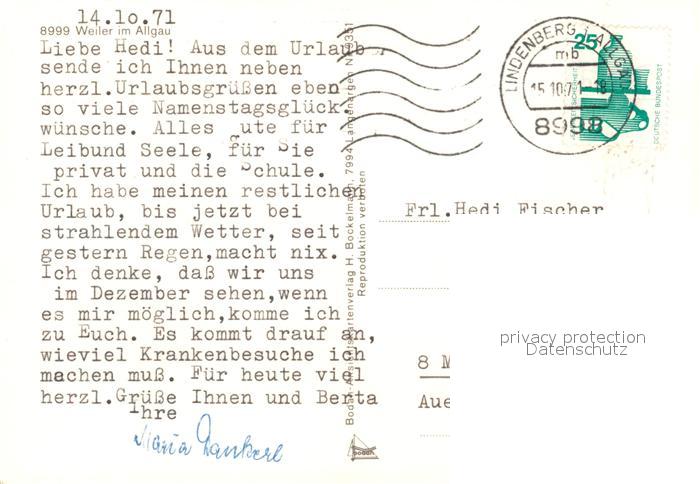 14.10.71
8999 Weiler im Allgäu
Liebe Hedi! Aus dem Urlaub
sende ich Ihnen neben
herzl.Urlaubsgrüßen eben
so viele Namenstagsglück
wünsche. Alles gute für
Leibund Seele, für Sie
privat und die Schule.
Ich habe meinen restlichen
Urlaub, bis jetzt bei
strahlendem Wetter, seit
gestern Regen,macht nix.
Ich denke, daß wir uns
im Dezember sehen,wenn
es mir möglich,komme ich
zu Euch. Es kommt drauf an,
wieviel Krankenbesuche ich
machen muß. Für heute viel
herzl.Grüße Ihnen und Berta
Ihre
Maria
Bodan-Ansichtskartenverlag H. Bockelmann, 7994 Langenargen
Reproduktion verboten
bodan
LINDENBERG
mb
15.10.71-18
8998
25
DEUTSCHE BUNDESPOST
Frl.Hedi Fischer
8 M
Aue
privacy protection
Datenschutz